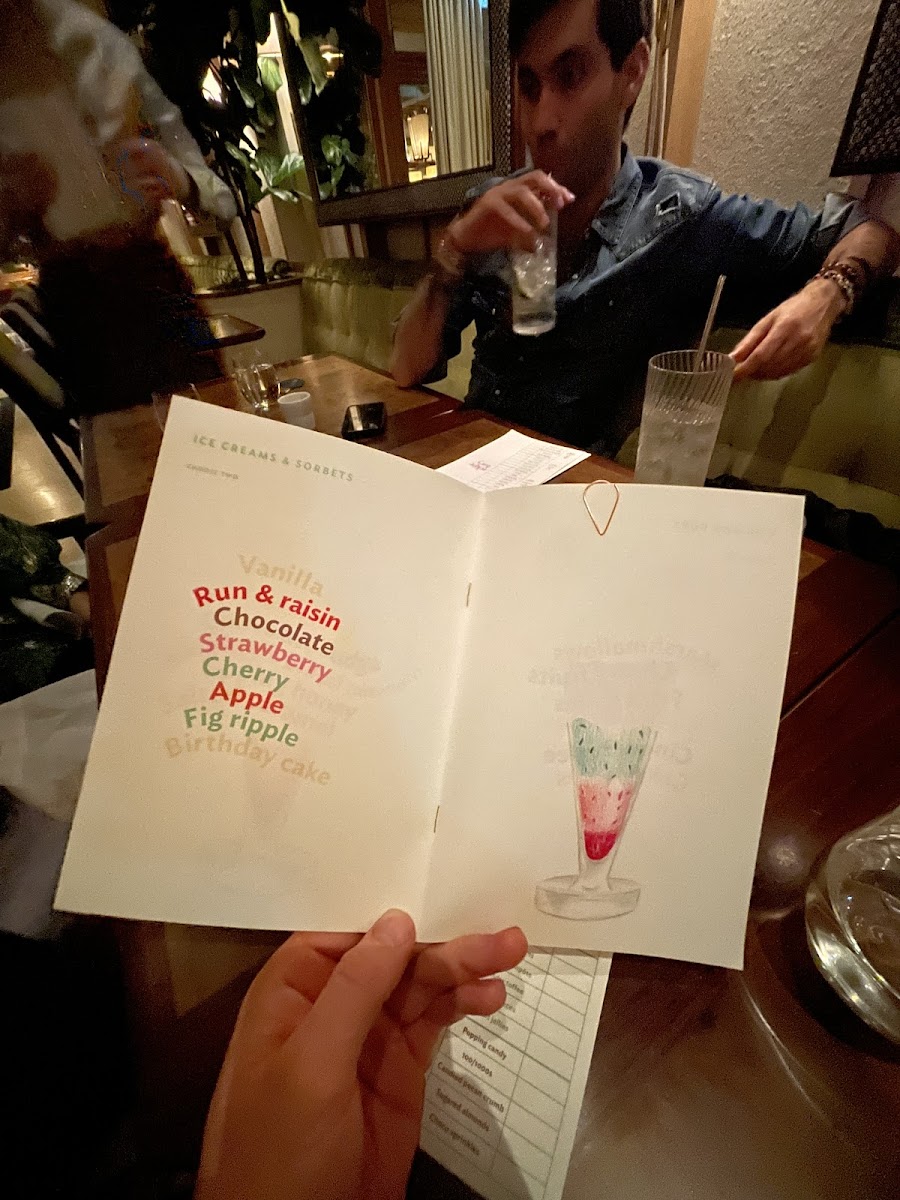 ICE CREAMS & SORBETS
CHOOSE TWO
Vanilla
Run & raisin
Chocolate
Strawberry
Cherry
Apple
Fig ripple
Birthday cake
toffee
jellies
Popping candy
100/1000s
Candied pecan crumb
Sugared almonds
Choco sprinkles